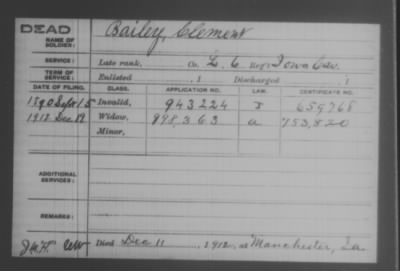 DEAD
NAME OF SOLDIER: Bailey, Clement
SERVICE: Late rank, Co. L, 6 Reg't Iowa Cav.
TERM OF SERVICE: Enlisted , 1 Discharged , 1
DATE OF FILING. CLASS. APPLICATION NO. LAW. CERTIFICATE NO.
1890 Sept 15 Invalid, 943224 J 659768
1912 Dec 19 Widow, 998,363 a 753,820
Minor,
ADDITIONAL SERVICES:
REMARKS:
Died Dec 11, 1912, at Manchester, Ia